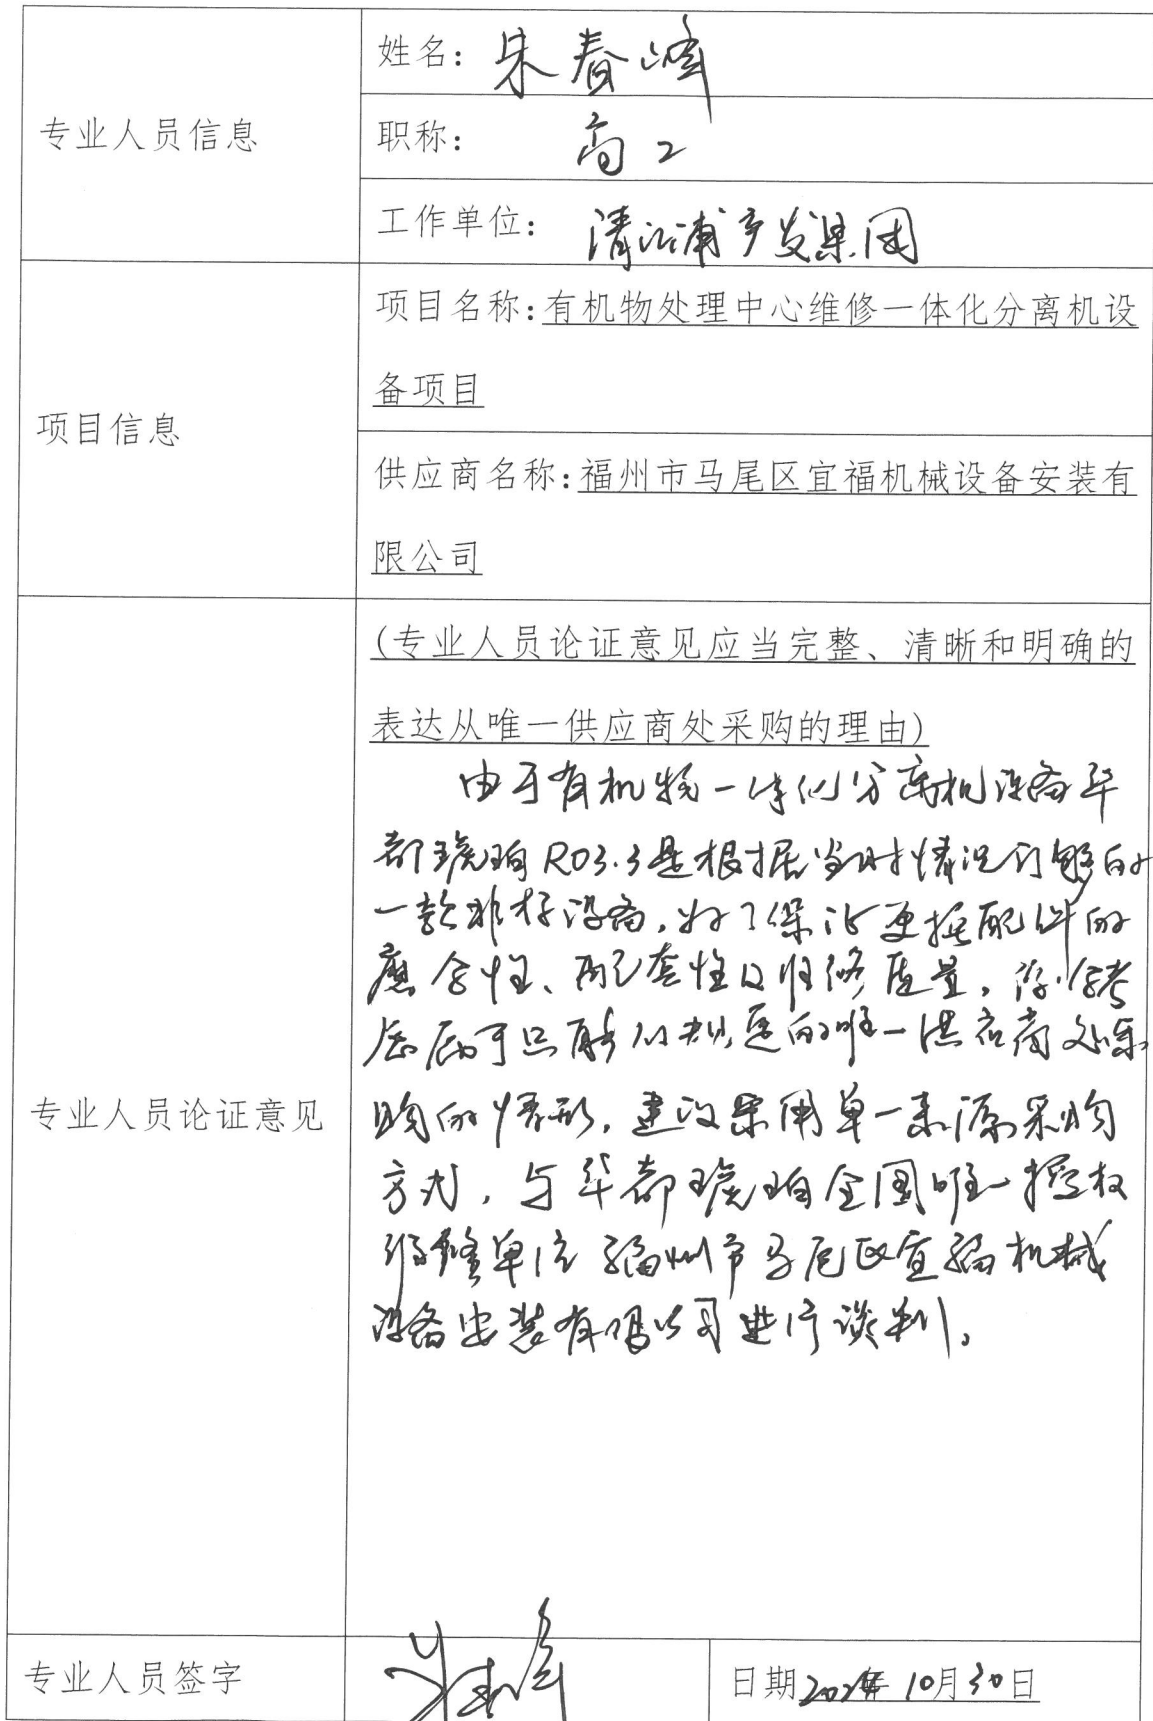 专业人员信息
姓名：朱春峰
职称：高工
工作单位：清江浦产发集团
项目信息
项目名称：有机物处理中心维修一体化分离机设
备项目
供应商名称：福州市马尾区宜福机械设备安装有
限公司
专业人员论证意见
(专业人员论证意见应当完整、清晰和明确的
表达从唯一供应商处采购的理由)
由于有机物一体化分离机设备华
都琥珀R03.3是根据当时情况订购的
一款非标设备，为了保证更换配件的
契合性、配套性及维修质量，
属于只能从规定的唯一供应商处采
购的情形，建议采用单一来源采购
方式，与华都琥珀全国唯一授权
维修单位福州市马尾区宜福机械
设备安装有限公司进行谈判。
专业人员签字
朱春峰
日期 10月30日